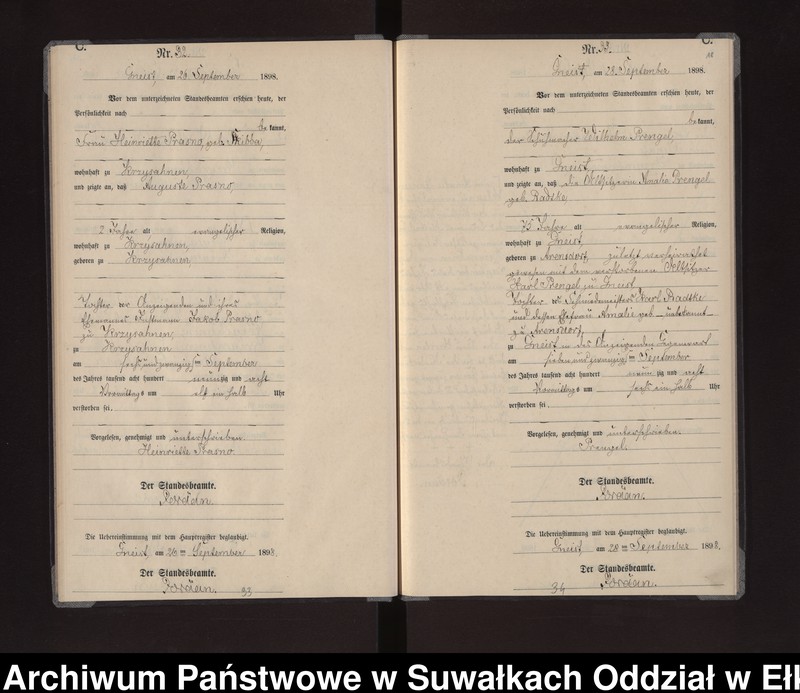 C.
Nr. 32.
Gneist, am 26. September 1898.
Vor dem unterzeichneten Standesbeamten erschien heute, der
Persönlichkeit nach
be kannt,
Frau Heinriette Prasno, geb. Skibba,
wohnhaft zu Krzysahnen,
und zeigte an, daß Auguste Prasno
2 Jahre alt evangelischer Religion,
wohnhaft zu Krzysahnen,
geboren zu Krzysahnen
Tochter der Anzeigenden und ihres
Ehemannes Jakob Prasno
zu Krzysahnen,
zu Krzysahnen
am sechsundzwanzigsten September
des Jahres tausend acht hundert neunzig und acht
Vormittags um elf ein halb Uhr
verstorben sei.
Vorgelesen, genehmigt und unterschrieben.
Heinriette Prasno
Der Standesbeamte.
Jordan.
Die Uebereinstimmung mit dem Hauptregister beglaubigt.
Gneist, am 26ten September 1898.
Der Standesbeamte.
Jordan.
33
C.
Nr.
Gneist, am 28. September 1898.
Vor dem unterzeichneten Standesbeamten erschien heute, der
Persönlichkeit nach
be kannt,
der Schuhmacher Wilhelm Prengel,
wohnhaft zu Gneist,
und zeigte an, daß die Altsitzerin Amalie Prengel
geb. Radtke
75 Jahre alt evangelischer Religion,
wohnhaft zu Gneist,
geboren zu Arensdorf, zuletzt verheirathet
gewesen mit dem verstorbenen Altsitzer
Karl Prengel zu Gneist,
Tochter des Schmiedemeisters Karl Radtke
und dessen Ehefrau Amalie geb. unbekannt
zu Arensdorf,
zu Gneist in des Anzeigenden Gegenwart
am siebenundzwanzigsten September
des Jahres tausend acht hundert neun zig und acht
Vormittags um sechs ein halb Uhr
verstorben sei.
Vorgelesen, genehmigt und unterschrieben.
Prengel.
Der Standesbeamte.
Jordan.
Die Uebereinstimmung mit dem Hauptregister beglaubigt.
Gneist, am 28ten September 1898.
Der Standesbeamte.
Jordan.
34
Archiwum Państwowe w Suwałkach Oddział w Ełk